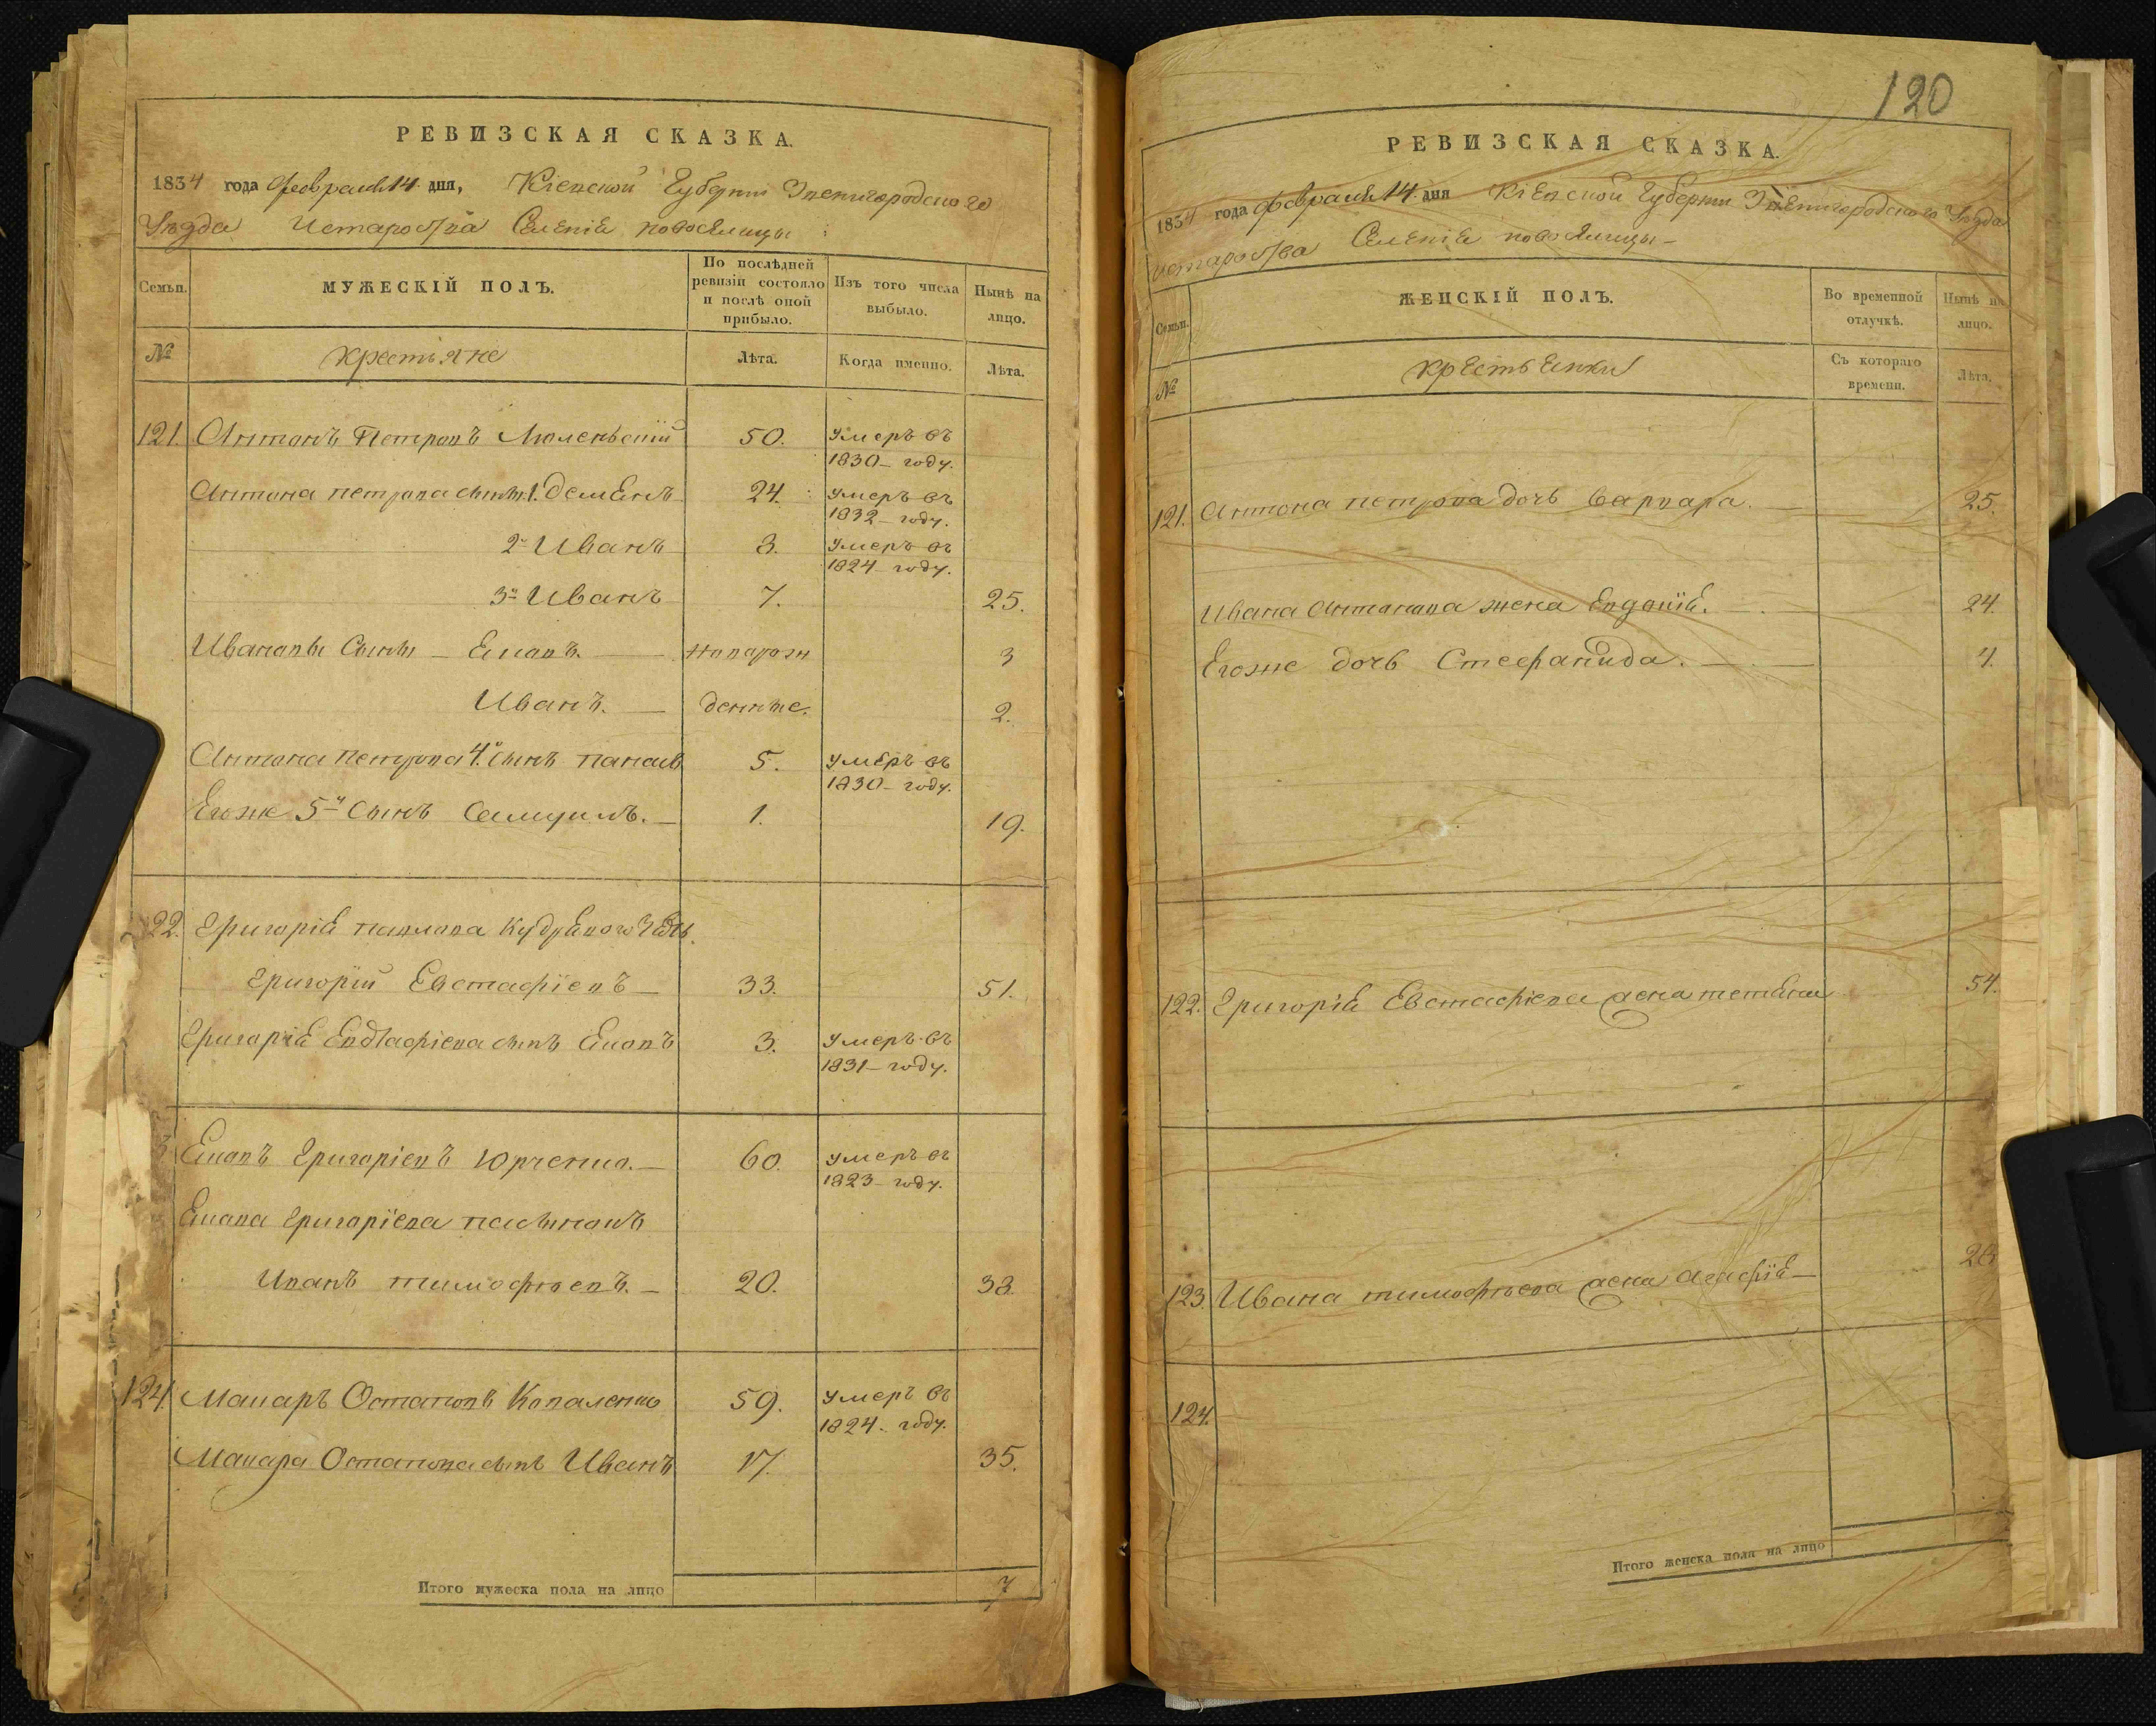 РЕВИЗСКАЯ СКАЗКА.
1834 года февраля 14 дня, Кіевской Губерніи Звенигородского
Уезда Староства Селенія новоселицы
Семьи.
МУЖЕСКІЙ ПОЛЪ.
По послѣдней ревизіи состояло и послѣ оной прибыло.
Изъ того числа выбыло.
Нынѣ на лицо.
№
крестьяне
Лѣта.
Когда именно.
Лѣта.
121. Антонъ Петровъ 50. умеръ въ
1830 году.
Антона петрова сынъ 1. Демянъ 24. умеръ въ
1832 году.
2й Иванъ 3. умеръ въ
1824 году.
3й Иванъ 7. 25.
Ивановы Сыны Яковъ новорож 3
Иванъ. денные. 2.
Антона петрова 4й сынъ панасъ 5. умеръ въ
1830 году.
Егоже 5й Сынъ Самуилъ. 1. 19.
22. Григорія павлова
Григорій Евстафіевъ 33. 51.
Григорія Евстафіева сынъ Яковъ 3. умеръ въ
1831 году.
3 Яковъ Григоріевъ Юрченко. 60. умеръ въ
1823 году.
Якова Григоріева пасынокъ
Иванъ тимофѣевъ. 20. 38.
124. Макаръ Остаповъ Коваленко 59. умеръ въ
1824 году.
Макара Остапова сынъ Иванъ 17. 35.
Итого мужеска пола на лицо 7
120
РЕВИЗСКАЯ СКАЗКА.
1834 года февраля 14 дня Кіевской Губерніи Звенигородского Уезда
староства Селенія новоселицы
Семьи.
ЖЕНСКІЙ ПОЛЪ.
Во временной отлучкѣ.
Нынѣ на лицо.
№
крестьянки
Съ котораго времени.
Лѣта.
121. Антона петрова дочь варвара. 25.
Ивана Антонова жена Евдокія. 24.
Егоже дочь Стефанида. 4.
122. Григорія Евстафіева жена тетяна 54.
123. Ивана тимофѣева жена Агафія
124.
Итого женска пола на лицо